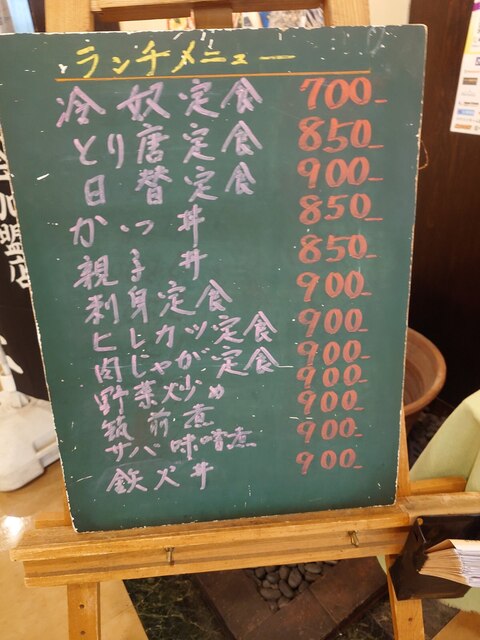 ランチメニュー
冷奴定食 700-
とり唐定食 850-
日替定食 900-
かつ丼 850-
親子丼 850-
刺身定食 900-
ヒレカツ定食 900-
肉じゃが定食 900-
野菜炒め 900-
筑前煮 900-
サバ味噌煮 900-
鉄火丼 900-
加盟店